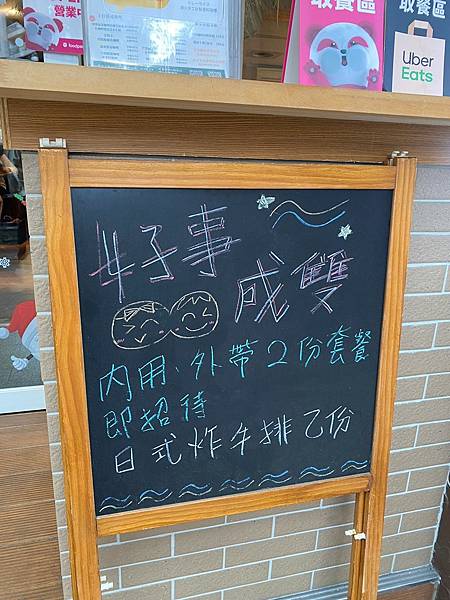 營業中
foodpanda
取餐區
取餐區
Uber
Eats
好事
成雙
內用、外帶2份套餐
即招待
日式炸牛排乙份